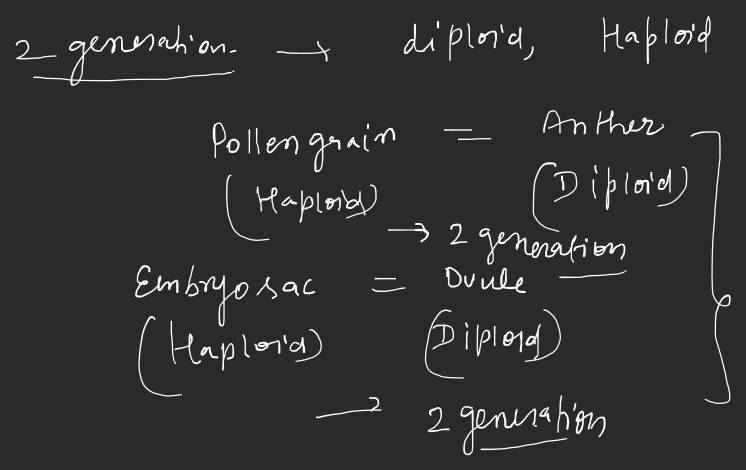 2 generation. → diploid, Haploid
Pollen grain = Anther
(Haploid) (Diploid)
→ 2 generation
Embryo sac = Ovule
(Haploid) (Diploid)
→ 2 generation